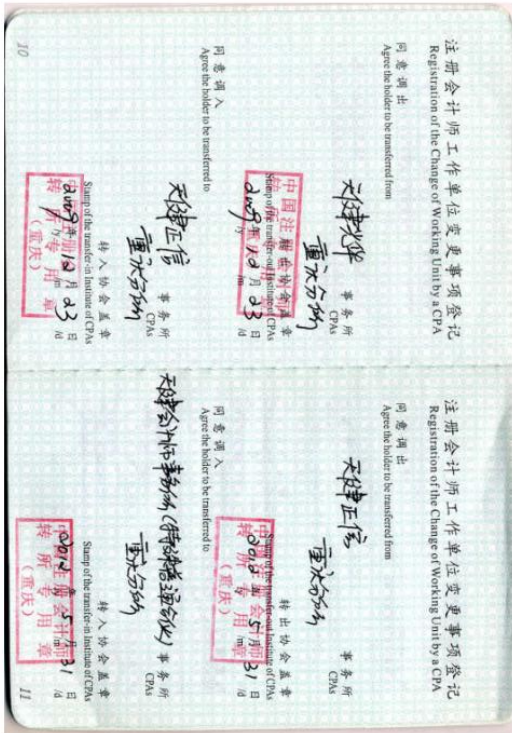 注册会计师工作单位变更事项登记
Registration of the Change of Working Unit by a CPA
同意调出
Agree the holder to be transferred from
天健光华
重庆分所
事务所
CPAs
转出协会盖章
Stamp of the transfer-out Institute of CPAs
中国注册会计师
转所专用章
(重庆)
2009年12月23日
/y /m /d
同意调入
Agree the holder to be transferred to
天健正信
重庆分所
事务所
CPAs
转入协会盖章
Stamp of the transfer-in Institute of CPAs
中国注册会计师
转所专用章
(重庆)
2009年12月23日
/y /m /d
10
注册会计师工作单位变更事项登记
Registration of the Change of Working Unit by a CPA
同意调出
Agree the holder to be transferred from
天健正信
重庆分所
事务所
CPAs
转出协会盖章
Stamp of the transfer-out Institute of CPAs
中国注册会计师
转所专用章
(重庆)
2012年5月31日
/m /d
同意调入
Agree the holder to be transferred to
天健会计师事务所(特殊普通合伙)
重庆分所
事务所
CPAs
转入协会盖章
Stamp of the transfer-in Institute of CPAs
中国注册会计师
转所专用章
(重庆)
2012年5月31日
/m /d
11